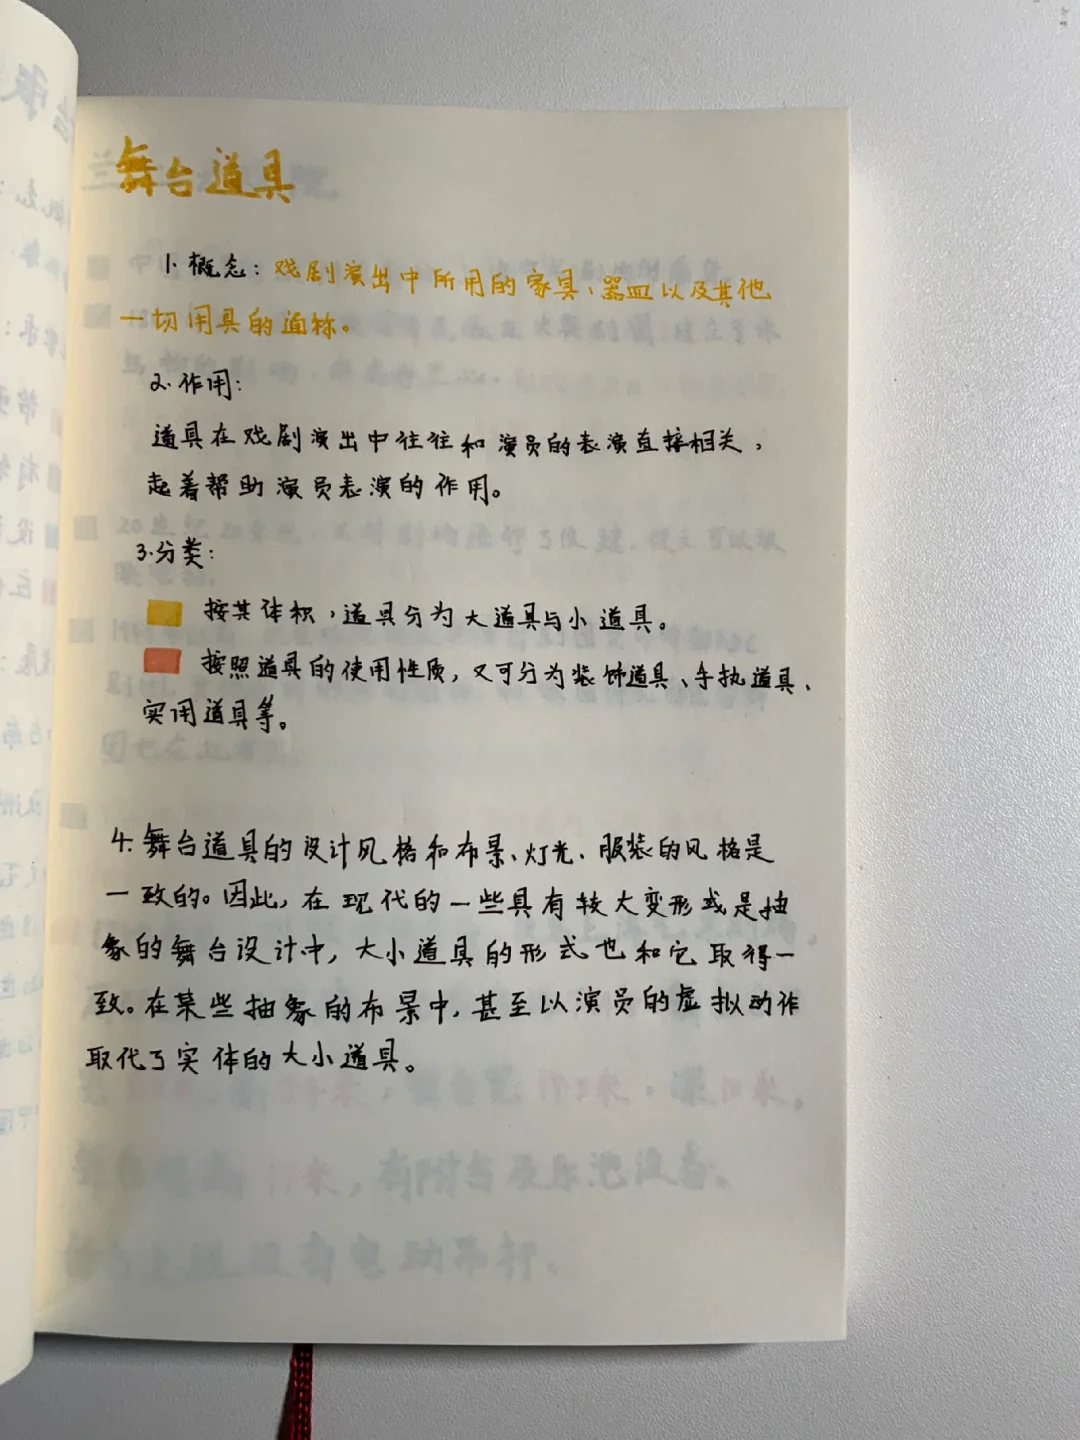 舞台道具
1.概念：戏剧演出中所用的家具、器皿以及其他
一切用具的通称。
2.作用：
道具在戏剧演出中往往和演员的表演直接相关，
起着帮助演员表演的作用。
3.分类：
按其体积，道具分为大道具与小道具。
按照道具的使用性质，又可分为装饰道具、手执道具、
实用道具等。
4.舞台道具的设计风格和布景、灯光、服装的风格是
一致的。因此，在现代的一些具有较大变形或是抽
象的舞台设计中，大小道具的形式也和它取得一
致。在某些抽象的布景中，甚至以演员的虚拟动作
取代了实体的大小道具。